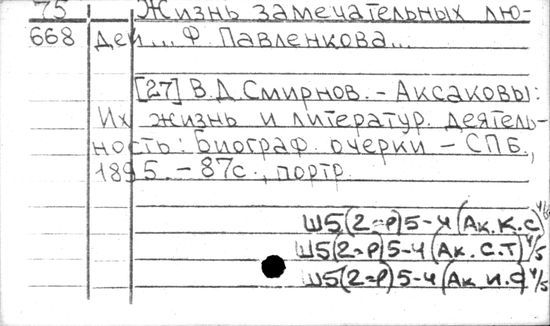 75 Жизнь замечательных лю-
668 дей... Ф. Павленкова...
[27] В.Д. Смирнов. - Аксаковы:
Их жизнь и литератур. деятель-
ность: Биограф. очерки - СПБ.,
1895. - 87с., портр.
Ш5(2=Р)5-4(Ак.К.С)
Ш5(2=Р)5-4(Ак.С.Т) 4/5
Ш5(2=Р)5-4(Ак.И.С) 4/5